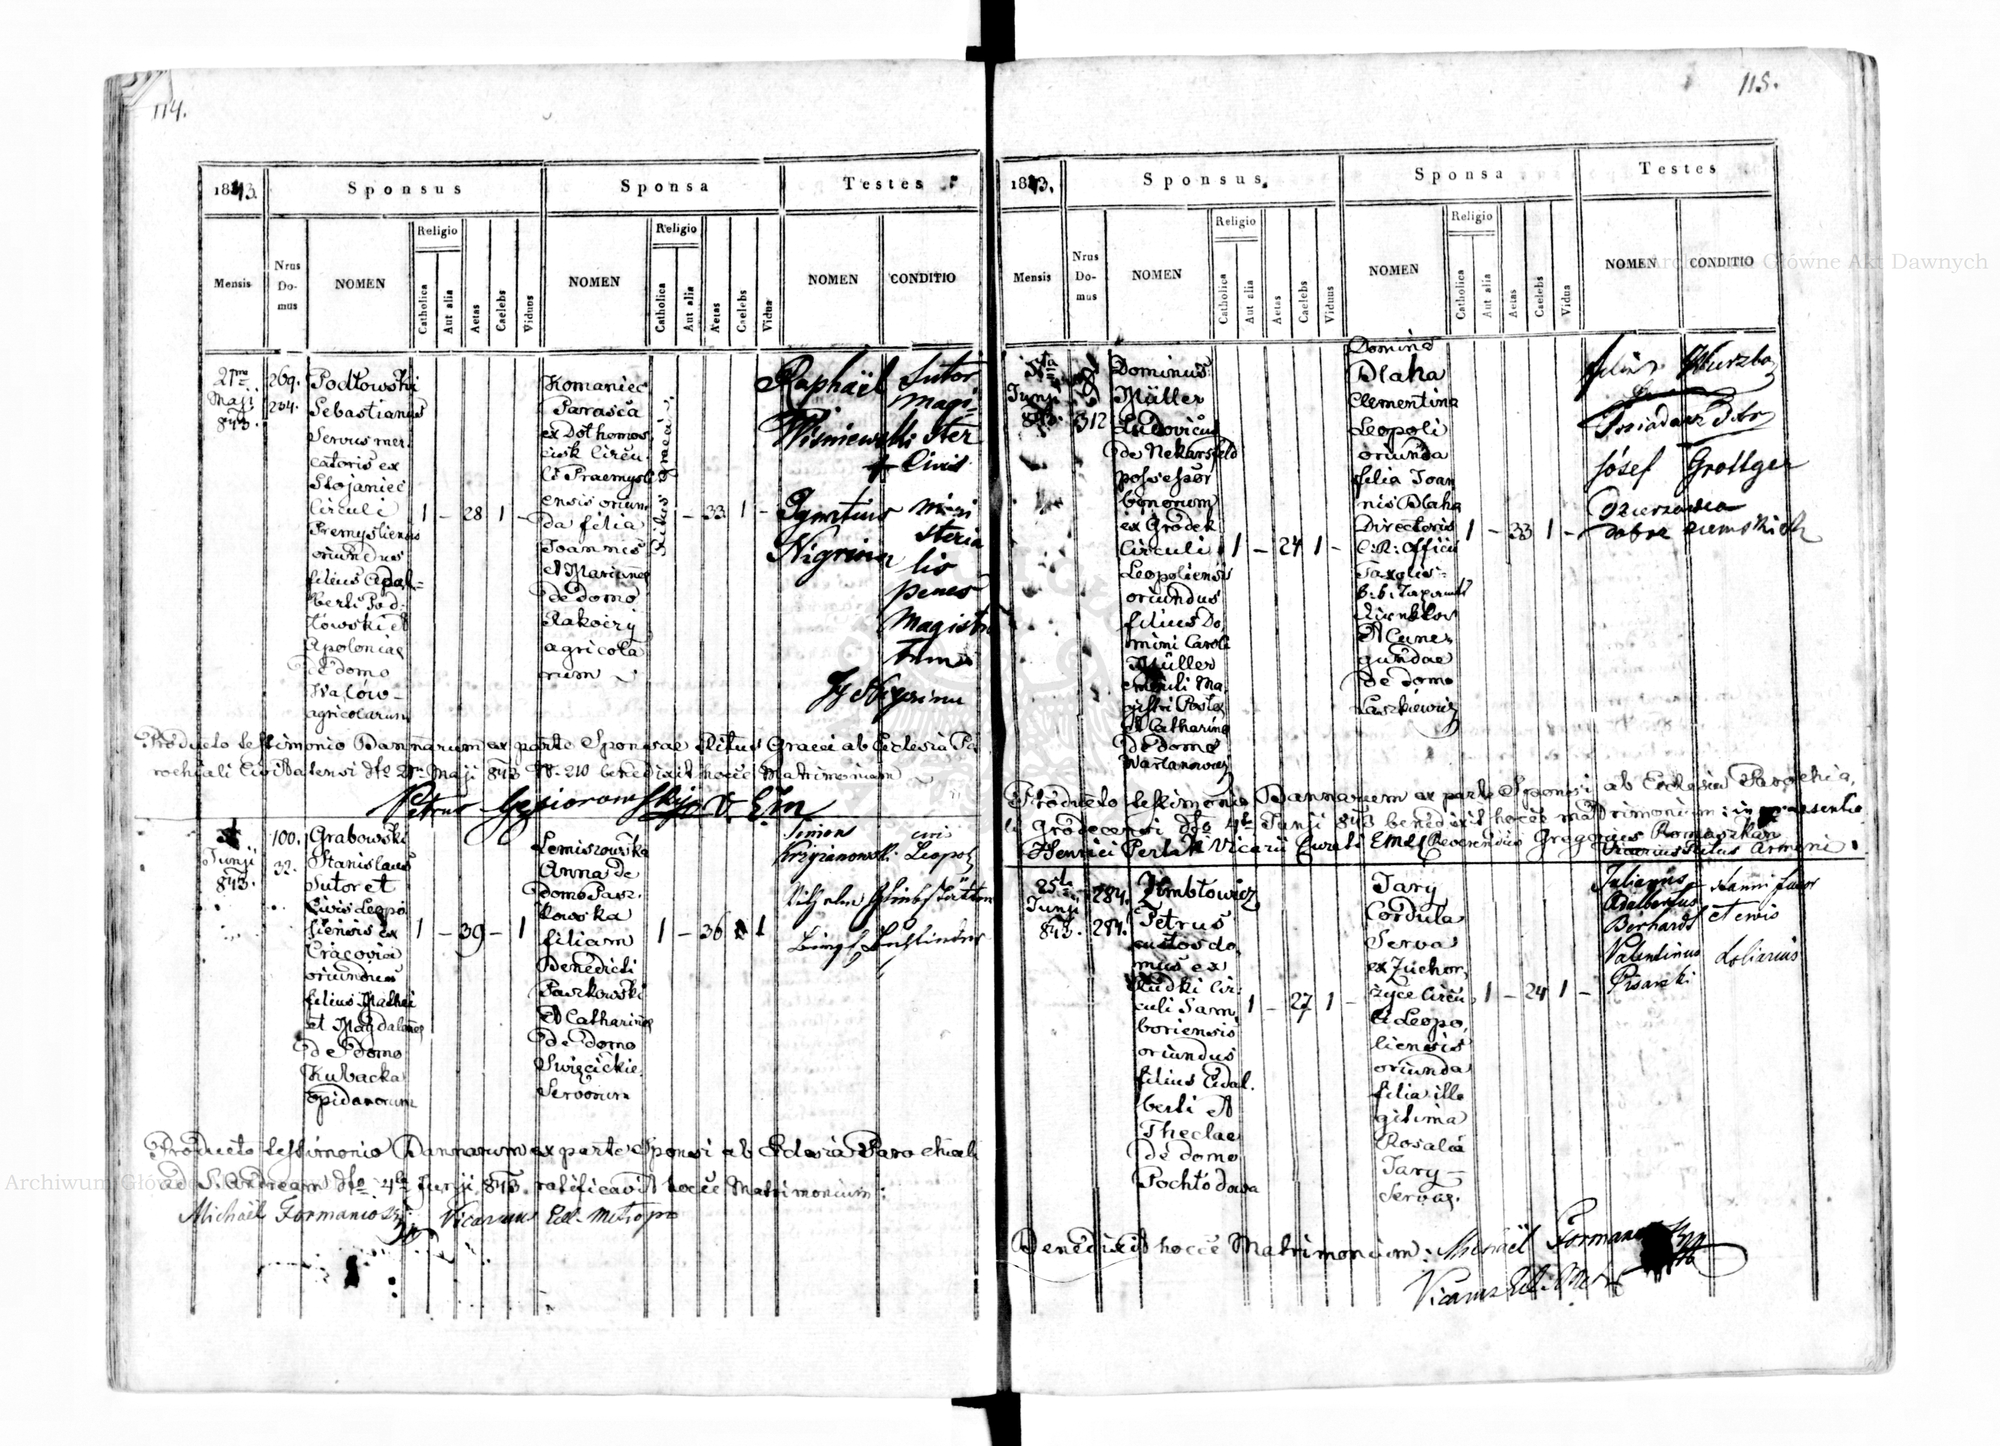 114.
1843.
Sponsus
Sponsa
Testes
Mensis
Nrus Domus
NOMEN
Religio
Catholica
Aut alia
Aetas
Caelebs
Viduus
NOMEN
Religio
Catholica
Aut alia
Aetas
Caelebs
Vidua
NOMEN
CONDITIO
21ma
Maji
843.
269.
234.
Podłowski
Sebastianus
Servus mer
catoris ex
Stojaniec
Circuli
Premysliensis
oriundus
filius Adal=
berti Pod
łowski et
Apoloniae
de domo
Walów
agricolarum
1 – 28 1 –
Komaniec
Parasca
ex Dothomos
cisk Circu
li Praemysli
ensis oriun
da filia
Joannis
et Mariannae
de domo
Rakoczy
agricola
rum
Ritus Graeci.
1 – 33 1 –
Raphäel
Wisniewski
Ignatius
Nigrina
Sutor
Magi
ster
+ Civis
mini
steria
lis
penes
Magistra
tum
Producto testimonio Bannarum ex parte Sponsae Ritus Graeci ab Eclesia Pa
rochiali Civitatensi dto 21. Maji 843 N. 210 benedixit hocce Matrimonium
Petrus
Junji
843.
100.
32.
Grabowski
Stanislaus
Sutor et
Civis Leopo
liensis ex
Cracovia
oriundus
filius Mathei
et Magdalenae
de domo
Kubacka
opidanorum
1 – 39 – 1
Lemiszowska
Anna de
domo Pasz
kowska
filiam
Benedicti
Paszkowski
et Catharinae
de domo
Swięcickie
Servorum
1 – 36 1
Simon
Krzyzanowski
civi
Leopol
Wilhelm
Producto testimonio Bannarum ex parte Sponsi ab Eclesia Parochiali
ad S. Andream dto 4ta Junji 843. ratificavit hocce Matrimonium:
Michaël Formaniosz Vicarius Eccl. Metropo
115.
1843.
Sponsus
Sponsa
Testes
Mensis
Nrus Domus
NOMEN
Religio
Catholica
Aut alia
Aetas
Caelebs
Viduus
NOMEN
Religio
Catholica
Aut alia
Aetas
Caelebs
Vidua
NOMEN
CONDITIO
Junji
843.
312
Dominus
Müller
Ludovicus
de Nekarsfeld
possessor
bonorum
ex Grodek
Circuli
Leopoliensis
oriundus
filius Do
mini Caroli
Müller
Ma
gistri Postae
et Catharinae
de domo
Wartanowicz
1 – 24 1 –
Domina
Blaha
Clementina
Leopoli
oriunda
filia Joan
nis Blaha
Directoris
C: R: Officii
Taxalis
et Cune
gundae
de domo
Laszkiewicz
1 – 33 1 –
Felix
Posiadacz Dobr
Jósef Grottger
Dzierzawca
dobr ziemskich
Producto testimonio Bannarum ex parte Sponsi ab Ecclesia Parochia
li Grodecensi dto 4ta Junji 843 benedixit hocce matrimonium: in praesentia
Henrici Perlak Vicarii Curati EML Reverendus Gregorius Romaszkan
Vicarius Ritus Armeni.
25ta
Junji
843.
284.
284.
Zembłowicz
Petrus
custos do
mus ex
Rudki Cir
culi Sam
boriensis
oriundus
filius Adal.
berti et
Theclae
de domo
Pochłodowa
1 – 27 1 –
Tary
Cordula
Serva
ex Zuchor
zyce Circu
li Leopo
liensis
oriunda
filia ille
gitima
Rosalia
Tary –
Servae.
1 – 24 1 –
Julianus
Adalbertus
Berhardt
Valentinus
Pisarski
et civis
Doliarius
Benedixit hocce Matrimonium: Michaël
Vicarius
Archiwum Główne Akt Dawnych